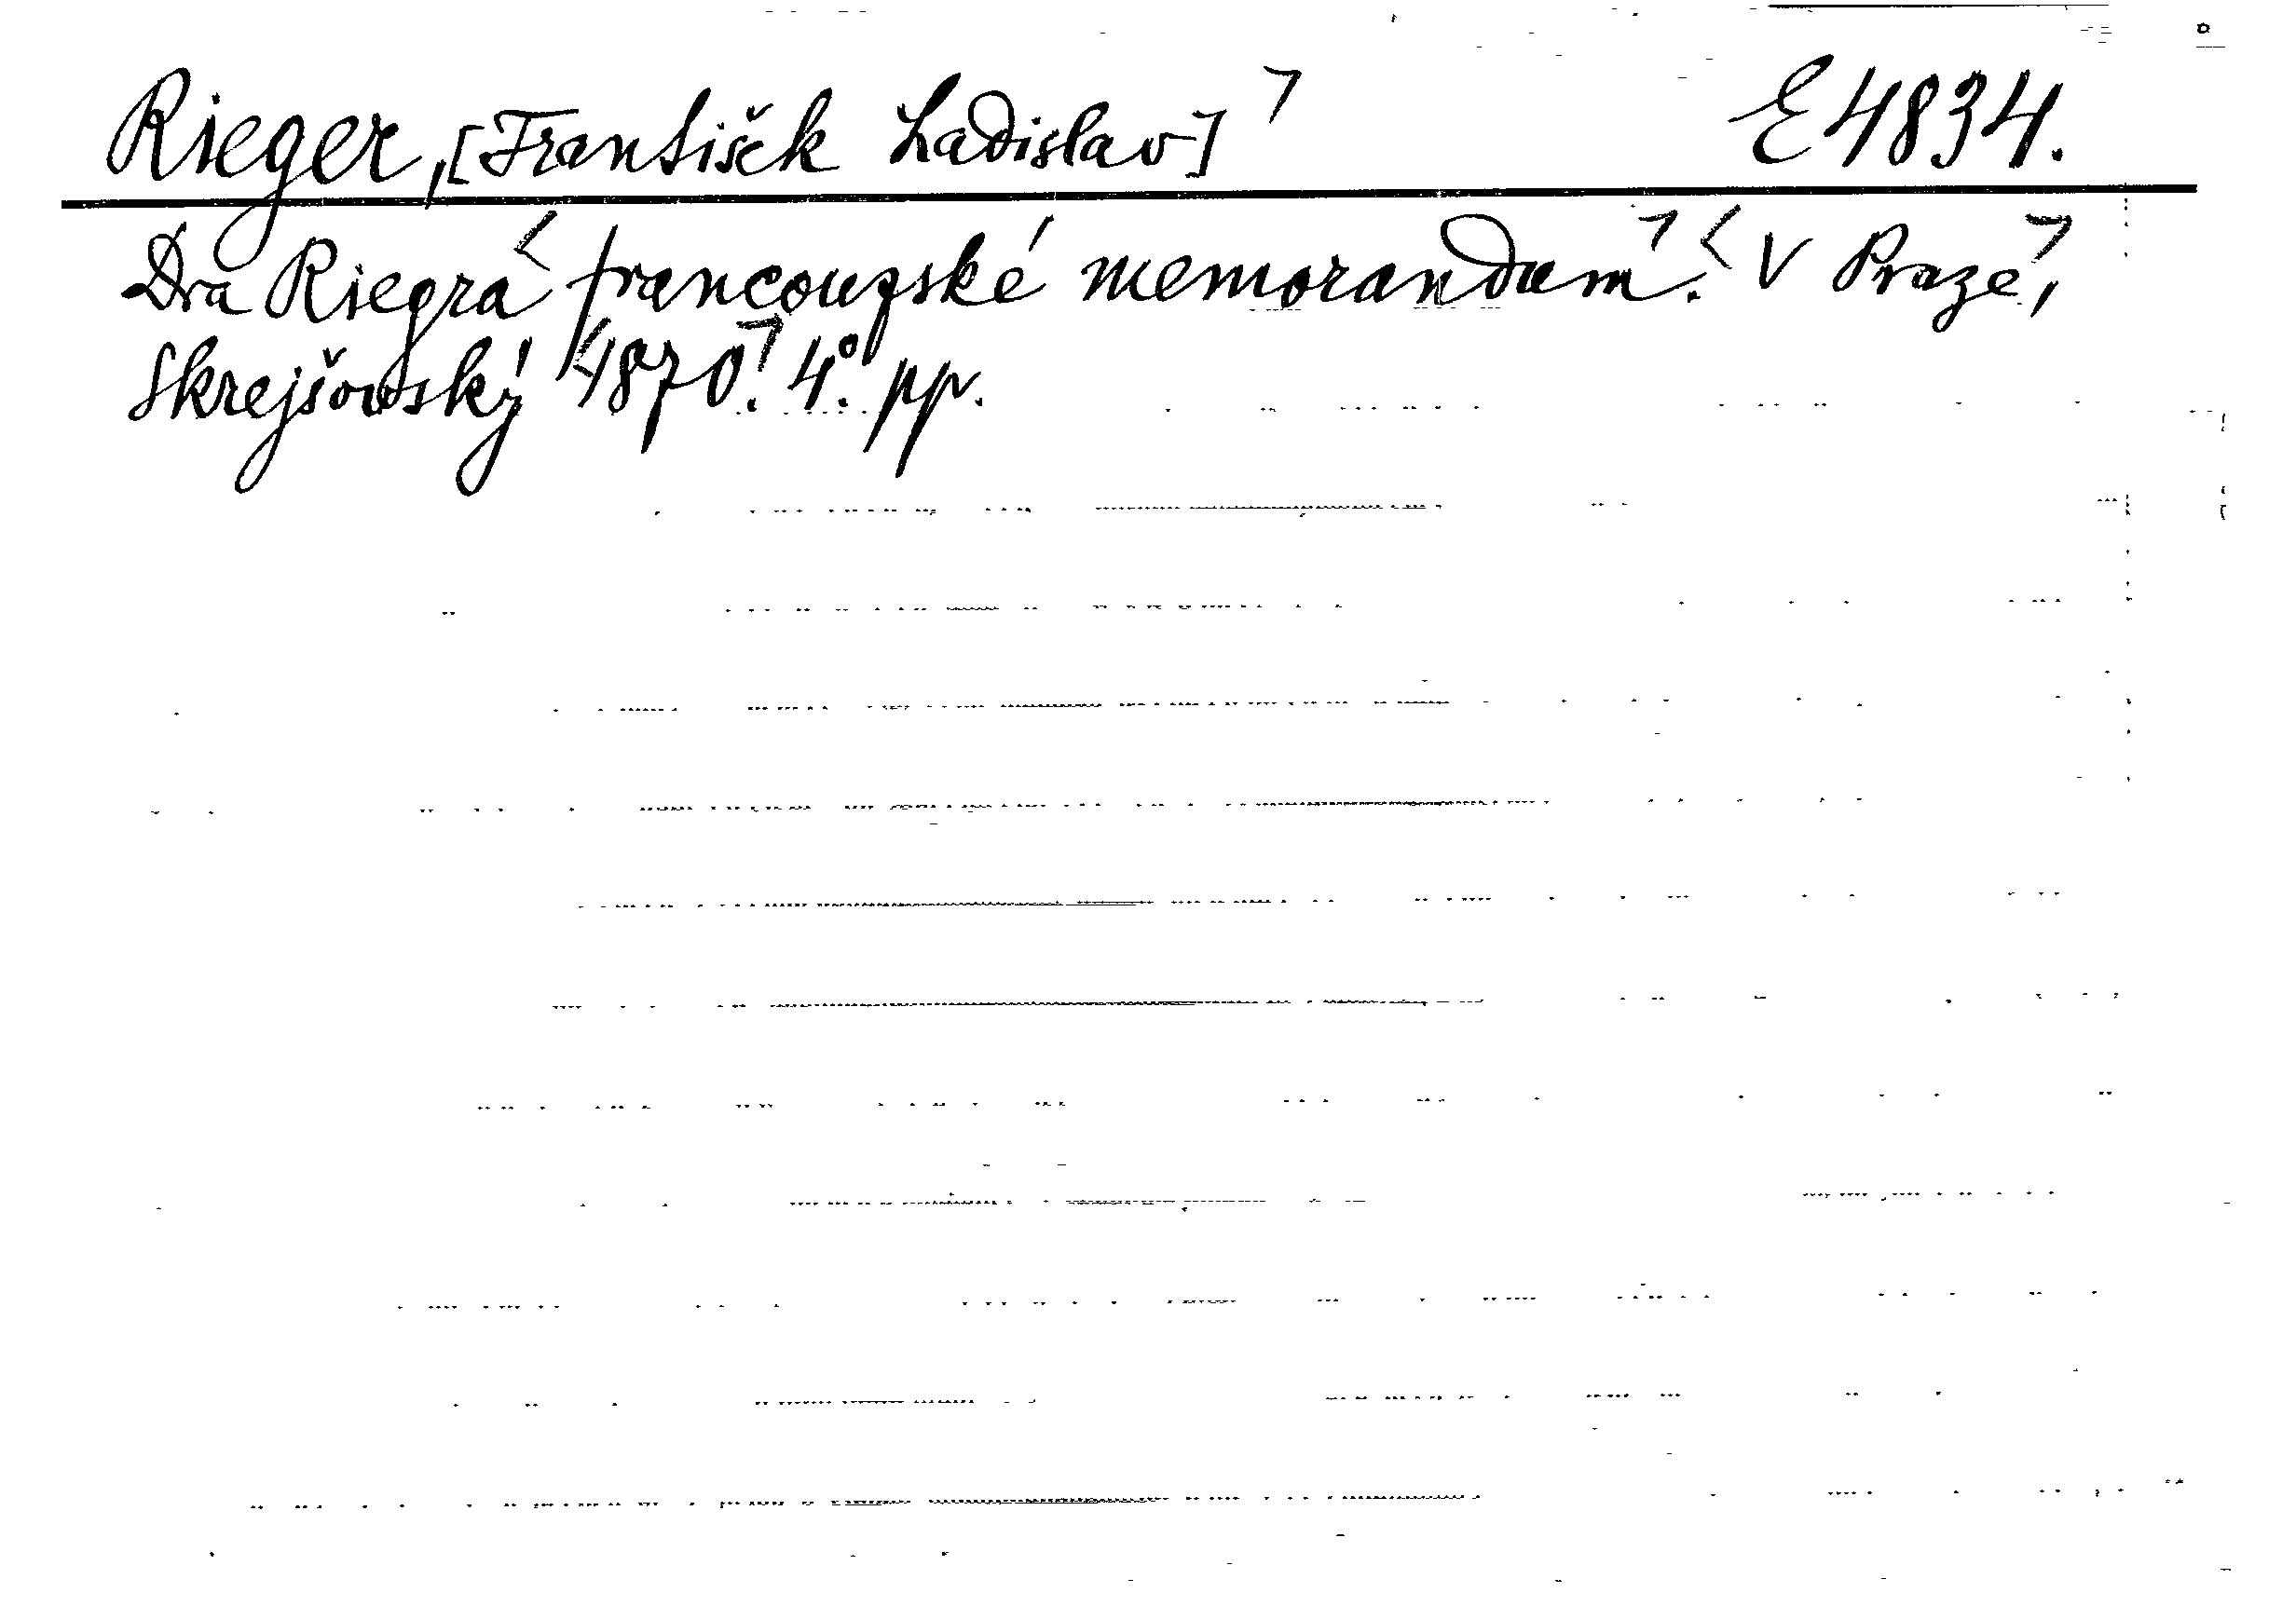 Rieger, [František Ladislav] E 4834.
Dra Riegra francouzské memorandum. V Praze,
Skrejšovský 1870. 4° pp.